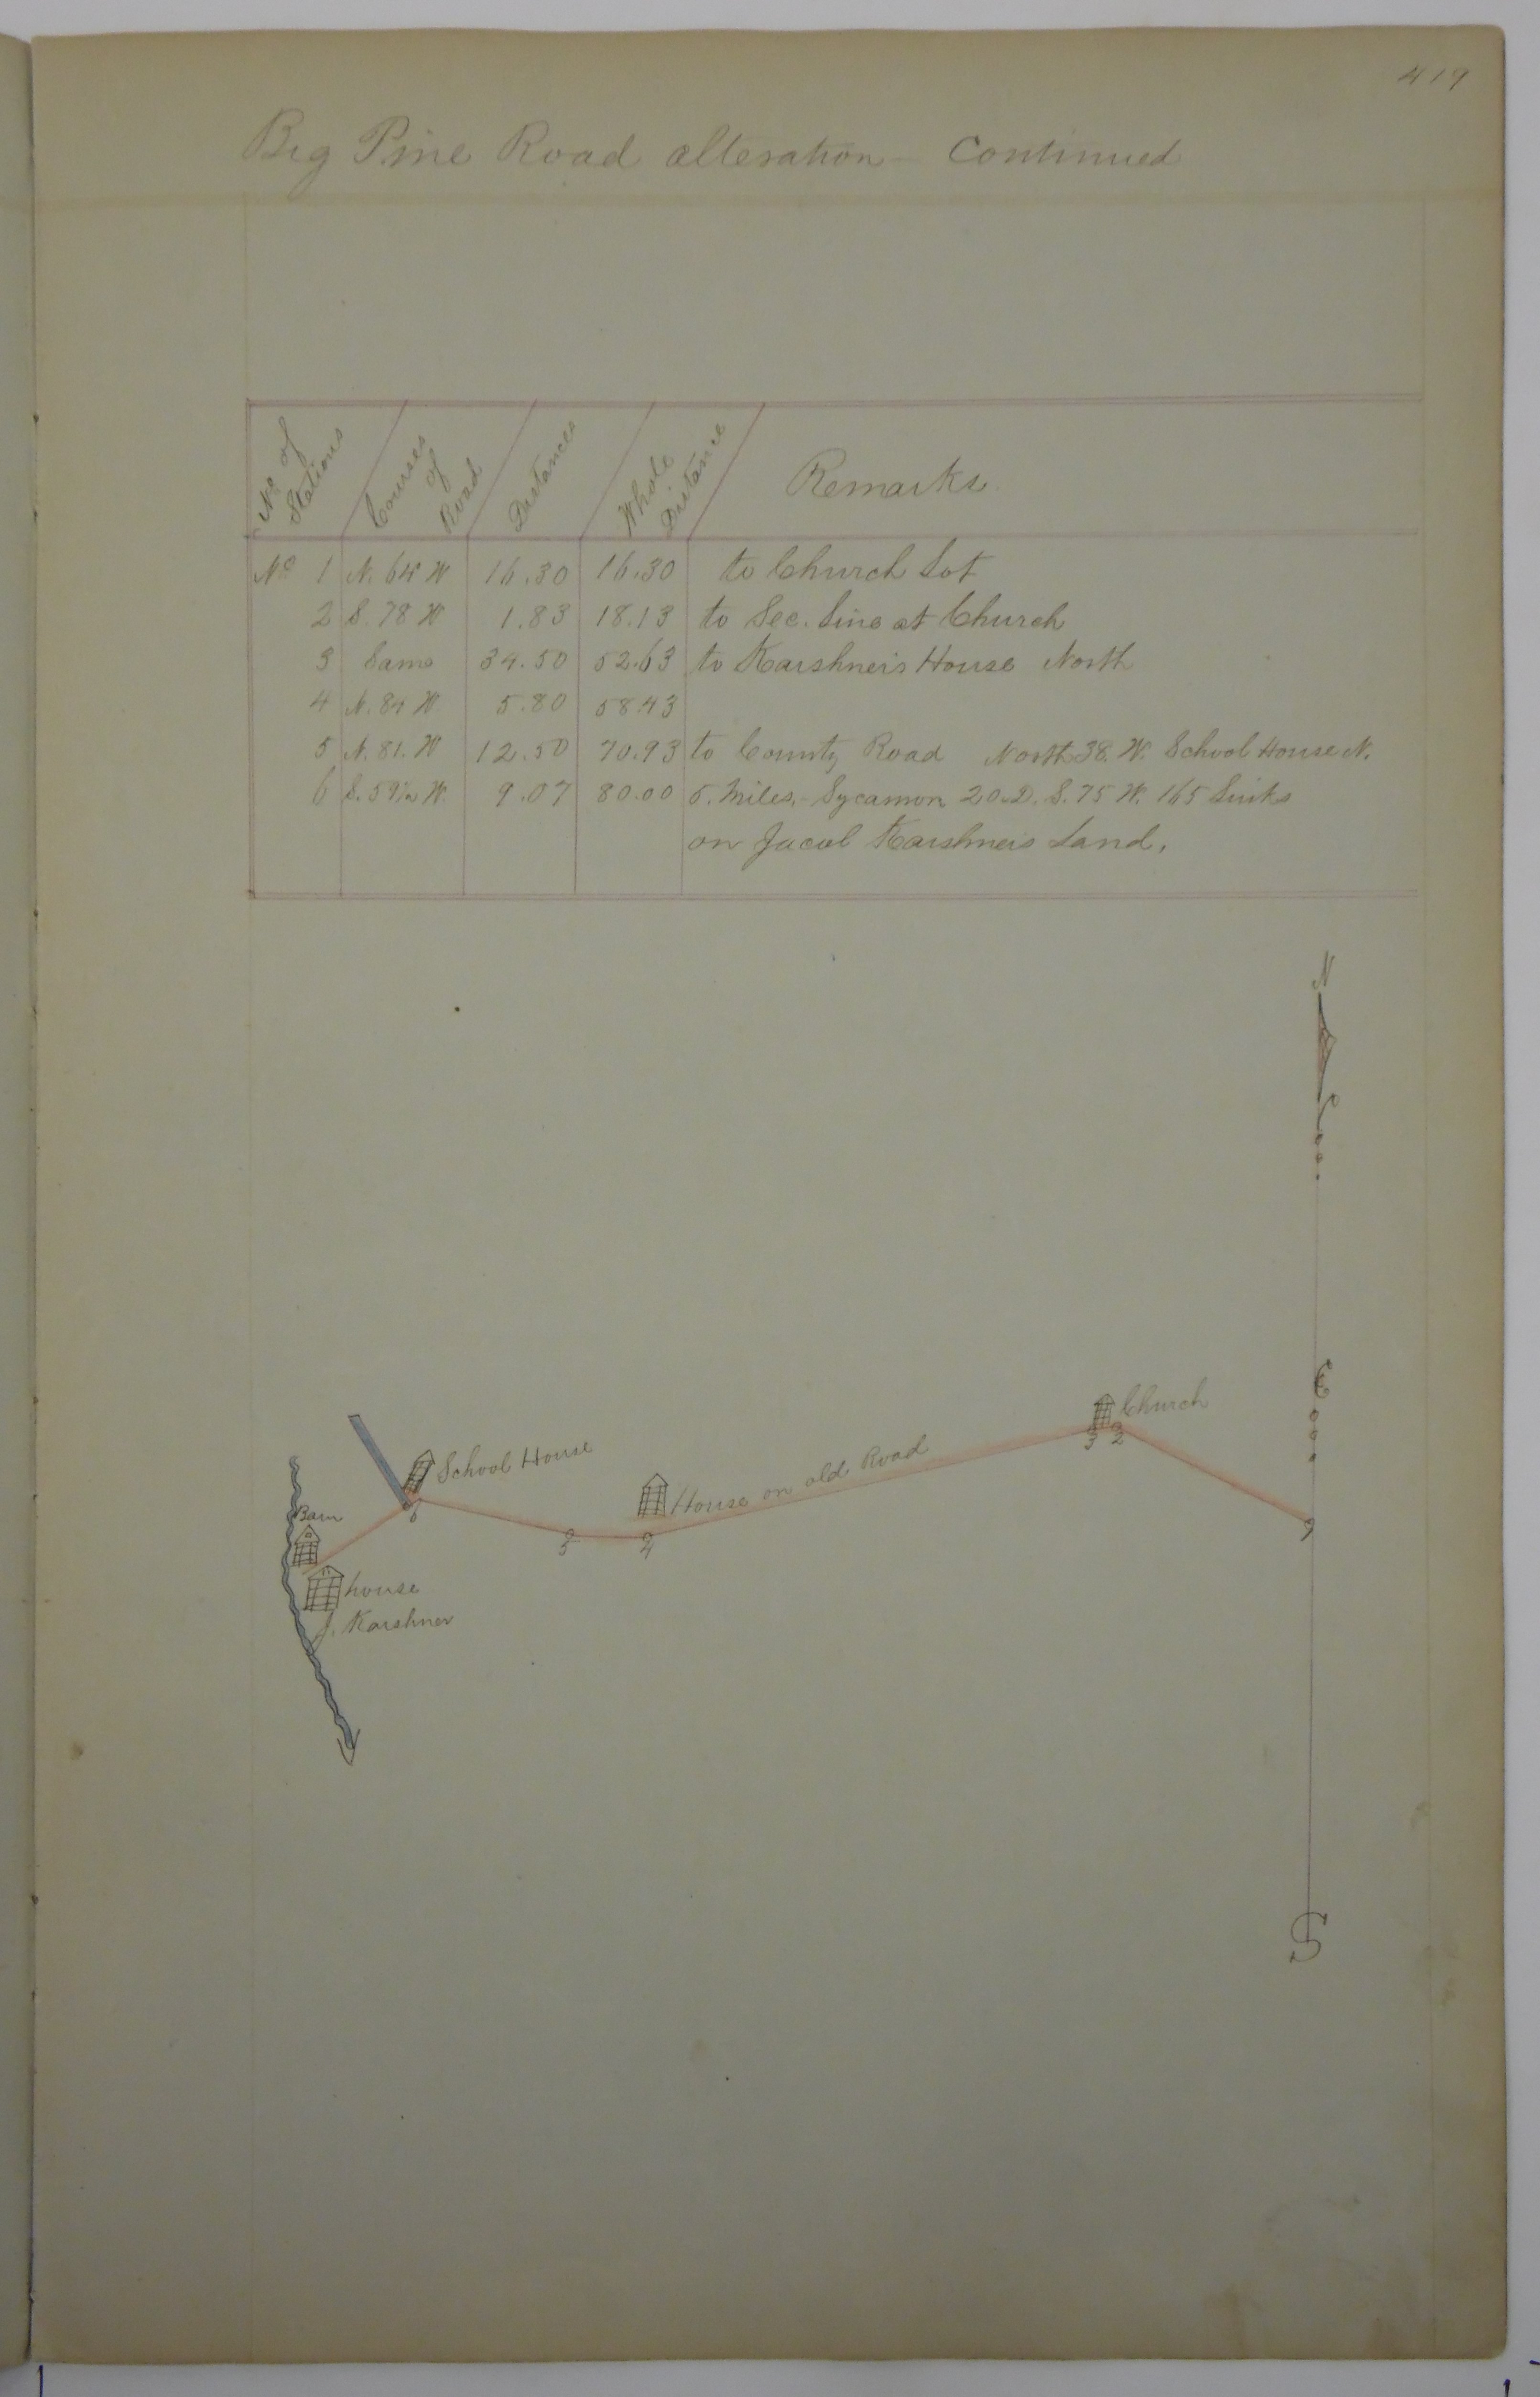 419
Big Pine Road alteration - Continued
No of Stations
Courses of Road
Distances
Whole Distance
Remarks.
No 1 N. 64 W 16.30 16.30 to Church Lot
2 S. 78 W 1.83 18.13 to Sec. Line at Church
3 Same 34.50 52.63 to Karshner's House North
4 N. 84 W. 5.80 58.43
5 N. 81. W 12.50 70.93 to County Road North 38. W. School House N.
6 S. 59½ W. 9.07 80.00 5. Miles, - Sycamon 20.D. S. 75 W. 165 Links
on Jacob Karshners Land,
N
Church
3 2
School House
House on old Road
6
Barn
5
4
house
J. Karshner
S